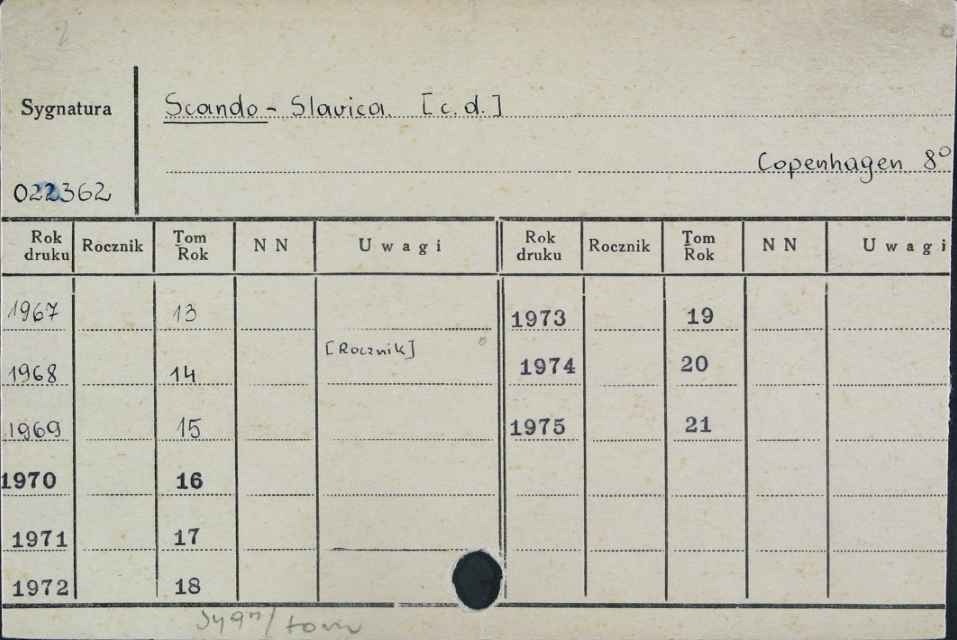 2
Sygnatura
Scando-Slavica. [c.d.]
Copenhagen 8°
022362
Rok druku Rocznik Tom Rok NN Uwagi Rok druku Rocznik Tom Rok NN Uwagi
1967 13 1973 19
[Rocznik]
1968 14 1974 20
1969 15 1975 21
1970 16
1971 17
1972 18
sygn/tom